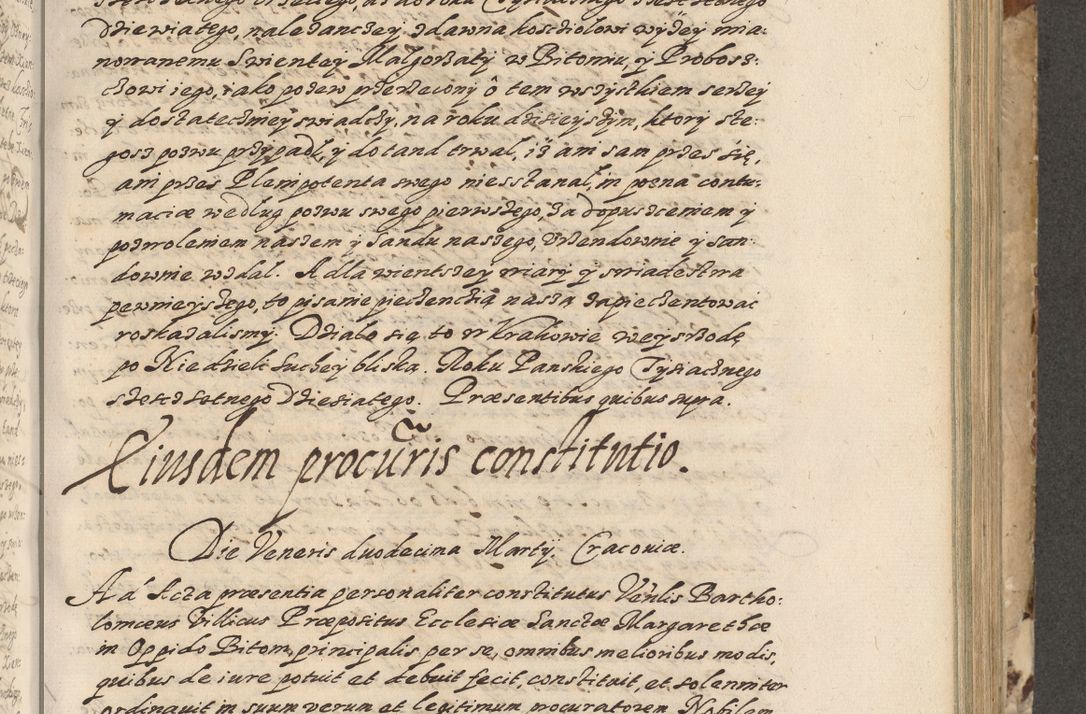 Dziewiatego, należanczey zdawna kosciolowi wyżey mia-
nowanemu Swientey Małgorzaty w Bitomiu, y Probosz-
czowi iego, iako pozew przerzeczony o tem wszystkiem szerzey
y dostateczniey swiadczy, na roku dzisieyszym, ktory z te-
gosz pozwu przypadł, y dotand trwal, isz ani sam przes się,
ani przes Plenipotenta swego nie sstanal, in poena contu-
maciæ według pozwu swego pierwszego, za dopuszczeniem y
pozwoleniem naszem y Sandu naszego, Vrzendownie y san-
downie wzdal. A dla wientszey wiary y swiadestwa
pewnieyszego, to pisanie pieczenczią naszą zapieczentowac
roskazalismy. Działo się to w Krakowie we yszrodę
po Niedzieli Suchey bliska. Roku Panskiego Tysiacznego
szescsetnego Dziesiatego. Præsentibus quibus supra.
Eiusdem procũris constitutio.
Die Veneris duodecima Martÿ. Cracoviæ.
Ad Acta præsentia personaliter constitutus Venlis Bartho-
lomæus Villicus Præpositus Ecclesiæ Sanctæ Margarethæ
in Oppido Bitom, principalis per se, omnibus melioribus modis,
quibus de iure potuit et debuit fecit, constituit, et solenniter
ordinavit in suum verum et legitimum procuratorem Nobilem